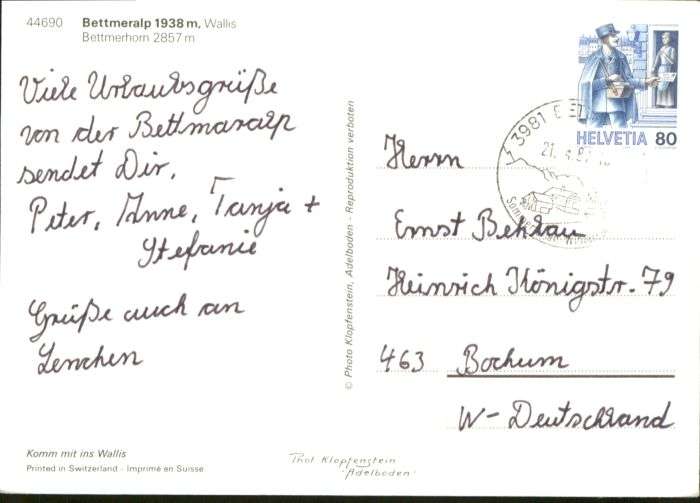 44690 Bettmeralp 1938 m, Wallis
Bettmerhorn 2857 m
Viele Urlaubsgrüße
von der Bettmaralp
sendet Dir,
Peter, Anne, Tanja +
Stefanie
Grüße auch an
Lenchen
Komm mit ins Wallis
Printed in Switzerland - Imprimé en Suisse
© Photo Klopfenstein, Adelboden - Reproduktion verboten
Phot Klopfenstein
Adelboden
HELVETIA 80
3981
Herrn
Ernst
Heinrich Königstr. 79
463 Bochum
W-Deutschland